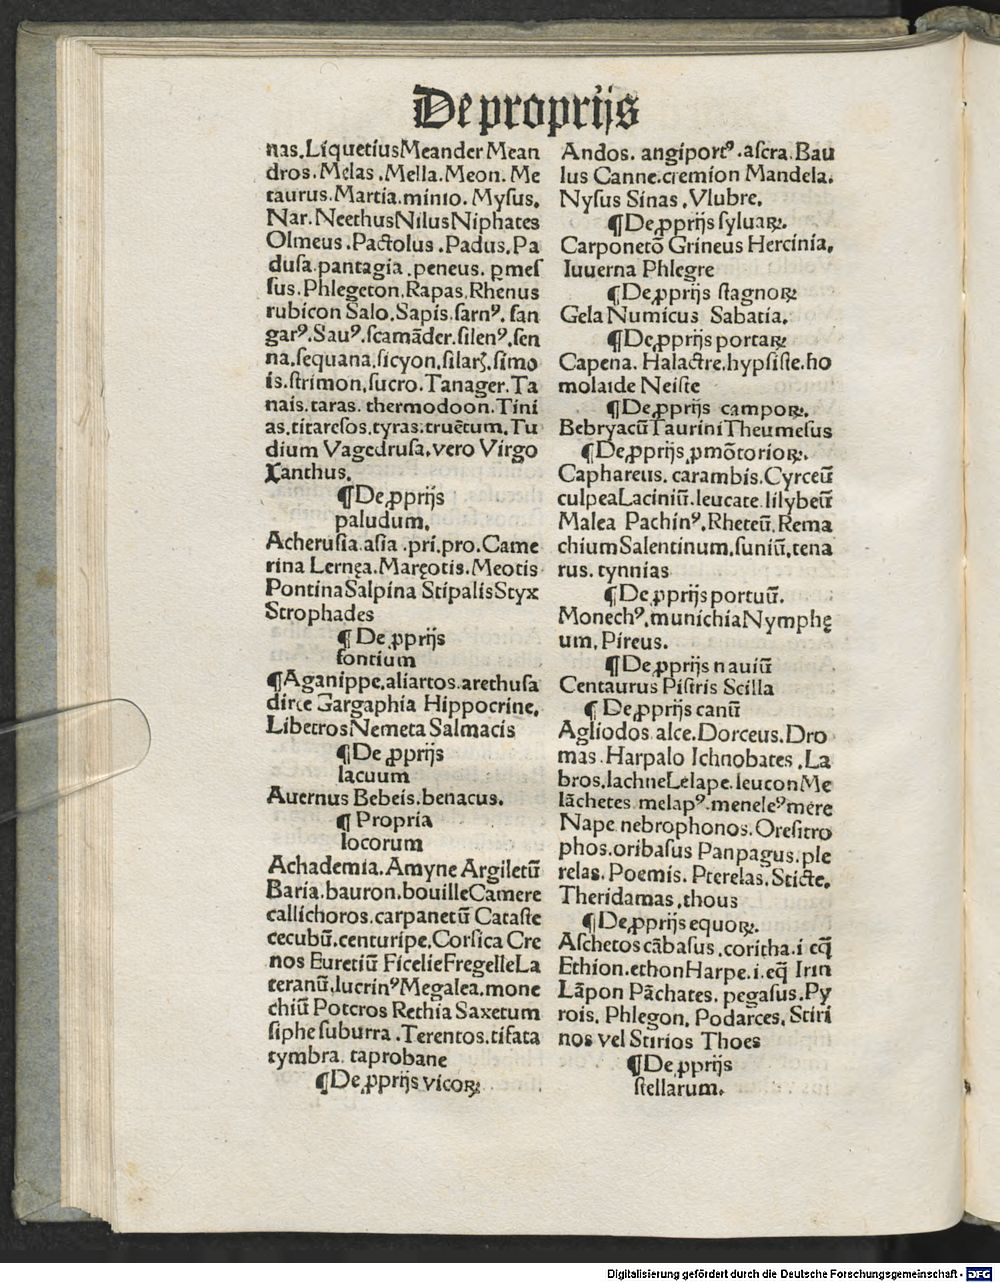 De proprijs
nas.LiquetiusMeander Mean
dros. Melas .Mella. Meon. Me
taurus. Martia.minio. Mysus.
Nar. NeethusNilusNiphates
Olmeus .Pactolus .Padus.Pa
dusa.pantagia .peneus. ꝑmes
sus. Phlegeton.Rapas.Rhenus
rubicon Salo.Sapis.sarnꝰ. san
garꝰ.Sauꝰ.scamāder.silenꝰ.sen
na.sequana.sicyon.silarꝰ.simo
is.strimon.sucro. Tanager. Ta
nais. taras. thermodoon. Tini
as.titaresos.tyras.truētum. Tu
dium Vagedrusa.vero Virgo
Xanthus.
¶De ꝓprijs
paludum.
Acherusia.asia .pri.pro. Came
rina Lernęa.Maręotis.Meotis
PontinaSalpina StipalisStyx
Strophades
¶ De ꝓprijs
fontium
¶Aganippe.aliartos.arethusa
dirce Gargaphia Hippocrine.
LibetrosNemeta Salmacis
¶De ꝓprijs
lacuum
Auernus Bebeis.benacus.
¶ Propria
locorum
Achademia. Amyne Argiletū
Baria.bauron.bouilleCamere
callichoros.carpanetū Cataste
cecubū.centuripe.Corsica Cre
nos Euretiū FicelieFregelleLa
teranū.lucrinꝰMegalea.mone
chiū Potcros Rethia Saxetum
siphe suburra .Terentos.tifata
tymbra. taprobane
¶De ꝓprijs vicoꝝ
Andos. angiportꝰ.ascra.Bau
lus Canne.cremion Mandela.
Nysus Sinas .Vlubre.
¶De ꝓprijs syluaꝝ.
Carponetō Grineus Hercinia.
Iuuerna Phlegre
¶De ꝓprijs stagnoꝝ
Gela Numicus Sabatia.
¶De ꝓprijs portaꝝ
Capena. Halactre.hypsiste.ho
moloide Neiste
¶De ꝓprijs campoꝝ.
Bebryacū Taurini Theumesus
¶De ꝓprijs ꝓmōtorioꝝ.
Caphareus. carambis.Cyrceū
culpeaLaciniū.leucate lilybeū
Malea Pachinꝰ.Rheteū.Rema
chiumSalentinum.suniū.tena
rus. tynnias
¶De ꝓprijs portuū.
Monechꝰ.munichiaNymphę
um. Pireus.
¶De ꝓprijs nauiū
Centaurus Pistris Scilla
¶ De ꝓprijs canū
Agliodos alce. Dorceus. Dro
mas .Harpalo Ichnobates .La
bros.lachneLelape.leuconMe
lāchetes melapꝰ.meneleꝰmere
Nape nebrophonos. Oresitro
phos.oribasus Panpagus.ple
relas. Poemis. Pterelas. Sticte.
Theridamas .thous
¶De ꝓprijs equoꝝ.
Aschetos cābasus .coritha.i eq̄
Ethion.ethonHarpe.i.eq̄ Irin
Lāpon Pāchates. pegasus. Py
rois. Phlegon. Podarces. Stiri
nos vel Stirios Thoes
¶De ꝓprijs
stellarum.
Digitalisierung gefördert durch die Deutsche Forschungsgemeinschaft - DFG